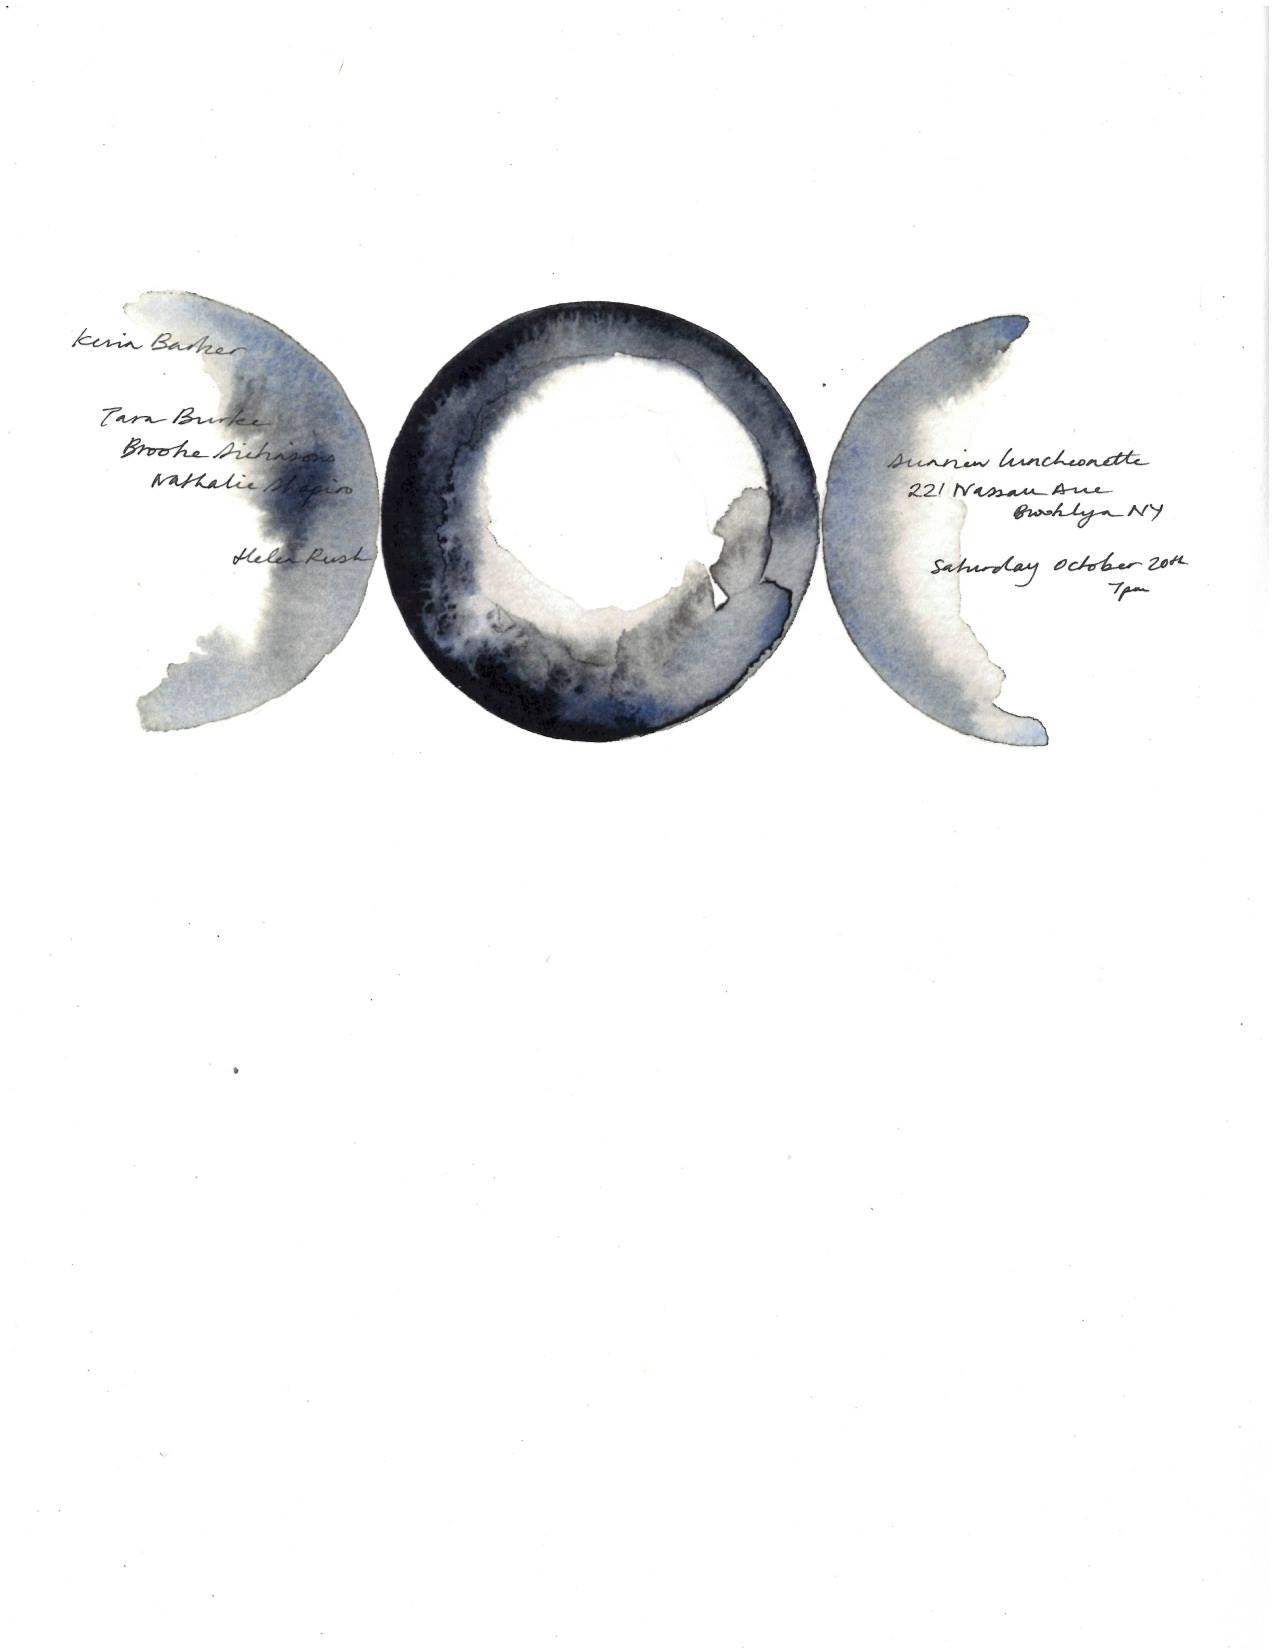 Kevin Barker
Tara Burke
Brooke
Nathalie Shapiro
Helen Rush
Sunview Luncheonette
221 Nassau Ave
Brooklyn NY
Saturday October 20th
7pm